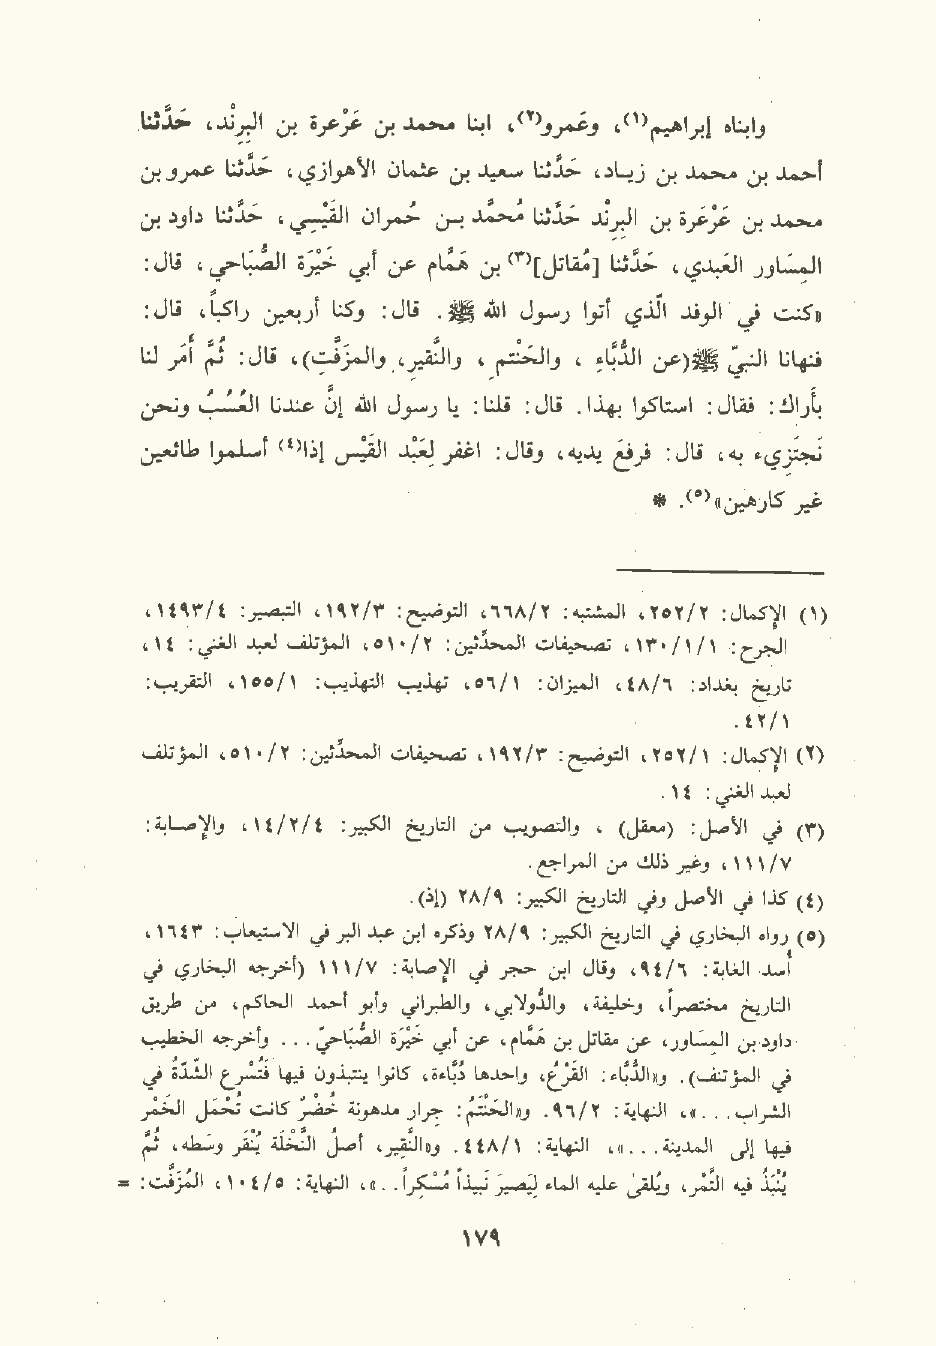 وابناه إبراهيم(١)، وعَمرو(٢)، ابنا محمد بن عَرْعرة بن البرِنْد، حَدَّثنا
أحمد بن محمد بن زيـاد، حَدَّثنا سعيد بن عثمان الأهوازي، حَدَّثنا عمرو بن
محمد بن عَرْعَرة بن البرِنْد حَدَّثنا مُحمَّد بـن حُمران القَيْسِي، حَدَّثنا داود بن
المِسَاور العَبدي، حَدَّثنا [مُقاتل](٣) بن هَمَّام عن أبي خَيْرَة الصُّبَاحي، قال:
«كنت في الوفد الَّذي أتوا رسول الله ﷺ. قال: وكنا أربعين راكباً، قال:
فنهانا النبيّ ﷺ (عن الدُّبَّاء، والحَنْتم، والنَّقير، والمزَفَّت)، قال: ثُمَّ أمَر لنا
بأرَاك: فقال: استاكوا بهذا. قال: قلنا: يا رسول الله إنَّ عندنا العُسُبَ ونحن
نَجتَزِيء به، قال: فرفعَ يديه، وقال: اغفر لِعَبْد القَيْس إذا(٤) أسلموا طائعين
غير كارهين»(٥). *
(١) الإكمال: ٢/٢٥٢، المشتبه: ٢/٦٦٨، التوضيح: ٣/١٩٢، التبصير: ٤/١٤٩٣،
الجرح: ١/١/١٣٠، تصحيفات المحدِّثين: ٢/٥١٠، المؤتلف لعبد الغني: ١٤،
تاريخ بغداد: ٦/٤٨، الميزان: ١/٥٦، تهذيب التهذيب: ١/١٥٥، التقريب:
١/٤٢.
(٢) الإكمال: ١/٢٥٢، التوضيح: ٣/١٩٢، تصحيفات المحدِّثين: ٢/٥١٠، المؤتلف
لعبد الغني: ١٤.
(٣) في الأصل: (معقل)، والتصويب من التاريخ الكبير: ٤/٢/١٤، والإصابة:
٧/١١١، وغير ذلك من المراجع.
(٤) كذا في الأصل وفي التاريخ الكبير: ٩/٢٨ (إذ).
(٥) رواه البخاري في التاريخ الكبير: ٩/٢٨ وذكره ابن عبد البر في الاستيعاب: ١٦٤٣،
أُسد الغابة: ٦/٩٤، وقال ابن حجر في الإصابة: ٧/١١١ (أخرجه البخاري في
التاريخ مختصراً، وخليفة، والدُولابي، والطبراني وأبو أحمد الحاكم، من طريق
داود بن المِسَاور، عن مقاتل بن هَمَّام، عن أبي خَيْرَة الصُّبَاحيّ... وأخرجه الخطيب
في المؤتنف). و«الدُبَّاء: القَرْع، واحدها دُبَّاءة، كانوا ينتبذون فيها فتُسْرع الشِّدَّةُ في
الشراب...»، النهاية: ٢/٩٦. و«الحَنْتَمُ: جرار مدهونة خُضرٌ كانت تُحْمَل الخَمْر
فيها إلى المدينة...»، النهاية: ١/٤٤٨. و«النَّقِير، أصل النَّخْلَة يُنْقَر وسَطه، ثُمَّ
يُنْبَذُ فيه التَّمْر، ويُلقىٰ عليه الماء لِيَصيرَ نَبيذاً مُسْكِراً..»، النهاية: ٥/١٠٤، المُزَفَّت: =
١٧٩